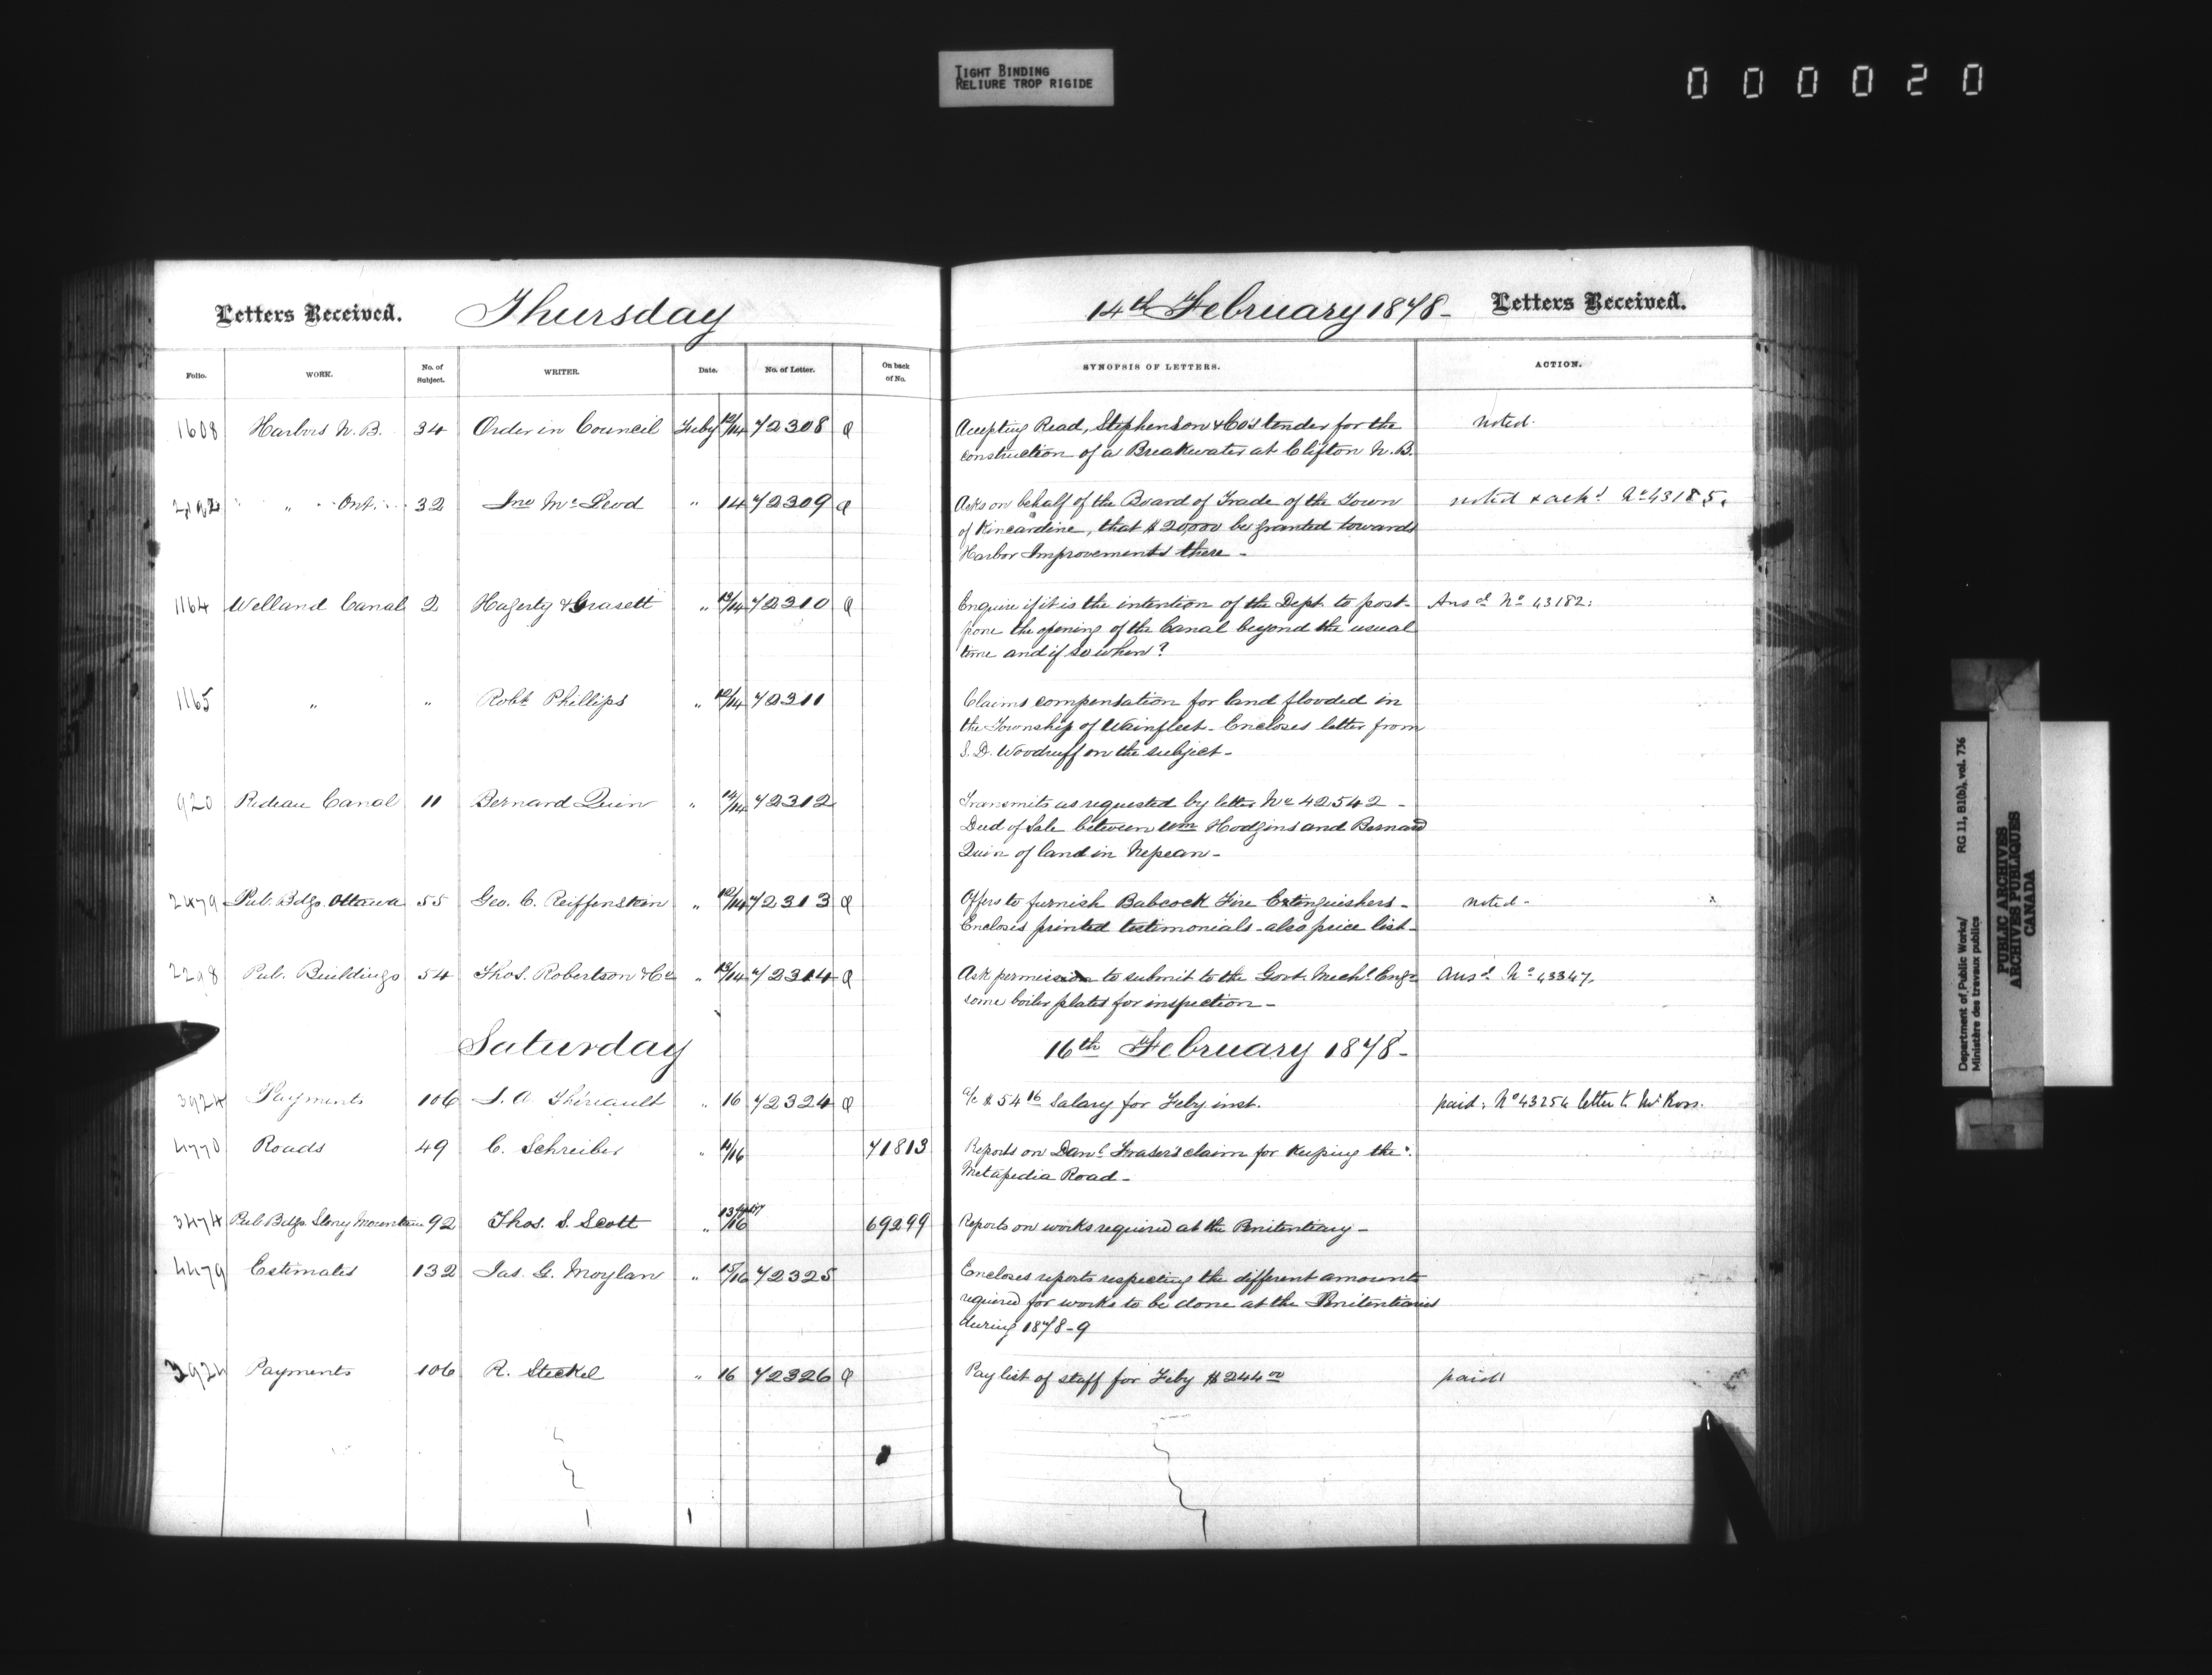 TIGHT BINDING
RELIURE TROP RIGIDE
000020
Letters Received. Thursday 14th February 1878 - Letters Received.
Folio. WORK. No. of Subject. WRITER. Date. No. of Letter. On back of No. SYNOPSIS OF LETTERS. ACTION.
1608 Harbors N.B. 34 Order in Council Feby 12/14 72308 Q Accepting Read, Stephenson & Co's tender for the noted.
construction of a Breakwater at Clifton N.B.
" Ont. 32 Jno McLeod " 14 72309 Q Asks on behalf of the Board of Trade of the Town noted & ackd No 43185.
of Kincardine, that $20,000 be granted towards
Harbor Improvements there -
1164 Welland Canal 2 Hagerty & Grasett " 13/14 72310 Q Enquire if it is the intention of the Dept. to post- Ansd No 43182.
pone the opening of the Canal beyond the usual
time and if so when?
1165 " " Robt Phillips " 12/14 72311 Claims compensation for land flooded in
the Township of Wainfleet - Encloses letter from
S. D. Woodruff on the subject -
920 Rideau Canal 11 Bernard Quin " 14/14 72312 Transmits as requested by letter No 42542 -
Deed of Sale between Wm Hodgins and Bernard
Quin of land in Nepean -
2479 Pub. Bdgs. Ottawa 55 Geo. C. Reiffenstein " 12/14 72313 Q Offers to furnish Babcock Fire Extinguishers - noted -
Encloses printed testimonials - also price list -
2298 Pub. Buildings 54 Thos. Robertson & Co " 13/14 72314 Q Ask permission to submit to the Govt. Mechl Engr Ansd No 43347.
some boiler plates for inspection -
Saturday 16th February 1878 -
3924 Payments 106 S. A. Thériault " 16 72324 Q a/c $54 16 Salary for Feby inst. paid; No 43254 letter to Mr Ross.
4770 Roads 49 C. Schreiber " /16 71813 Reports on Danl Fraser's claim for keeping the
Metapedia Road -
3474 Pub Bdgs. Stony Mountain 92 Thos. S. Scott " /16 69299 Reports on works required at the Penitentiary -
4479 Estimates 132 Jas. G. Moylan " 15/16 72325 Encloses reports respecting the different amounts
required for works to be done at the Penitentiaries
during 1878-9
3924 Payments 106 R. Steckel " 16 72326 Q Pay list of staff for Feby $244 00 paid
Department of Public Works/ RG 11, B1(b), vol. 736
Ministère des travaux publics
PUBLIC ARCHIVES
ARCHIVES PUBLIQUES
CANADA